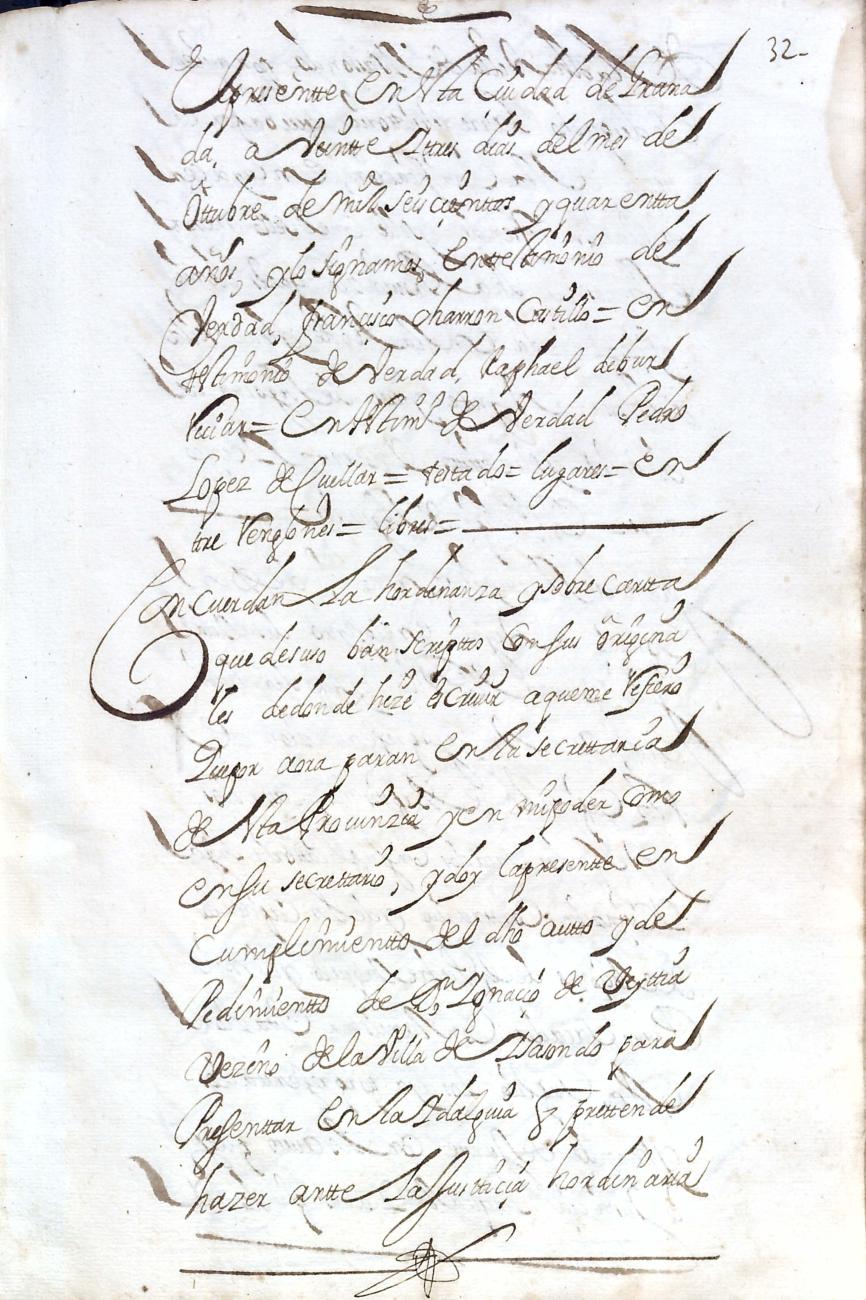 32-
El presentte, en Vta Ciudad de Grana
da, a veintte Ytres dias del mes de
Ottubre de mil seiscientos y quarentta
años, ylo signamos, en testimonio de
Verdad, francisco charron Castillo = en
testimonio de Verdad, Raphael de
= en testim.º de Verdad Pedro
Lopez de Cuellar = testado = lugares = en
tre Renglones = libres =
Concuerdan La hordenanza y sobre cartta
que de suso ban scripttos con sus origina
les de donde hize escriuir a que me Refiero
Quepor aora paran en la secrettaria
de Vta Prouinzia yen mi poder como
en su secrettario, y doy la presentte en
Cumplimientto del dho autto y de
Pedimientto de D.n Ygnacio de
Vezino de la Villa de Ytsasondo para
Presenttar en la Ydalguia q prettende
hazer antte La Justticia hordinaria